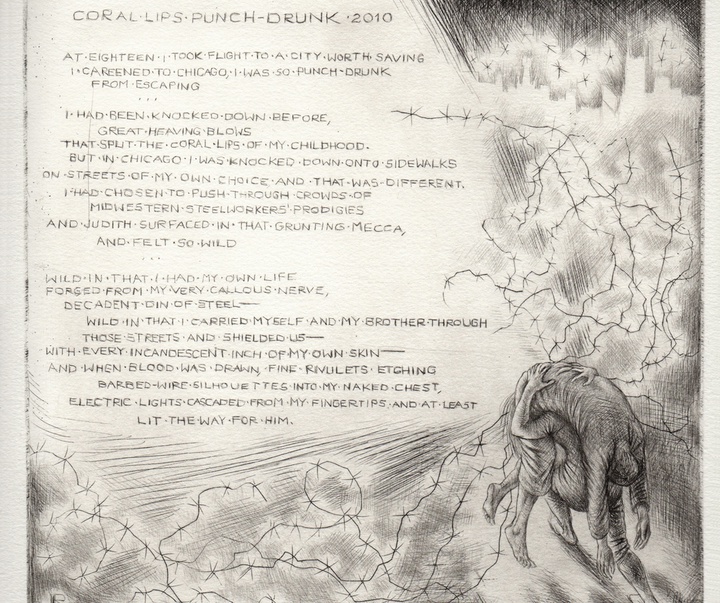 CORAL·LIPS·PUNCH-DRUNK·2010
AT·EIGHTEEN·I·TOOK·FLIGHT·TO·A·CITY·WORTH·SAVING
I·CAREENED·TO·CHICAGO,·I·WAS·SO·PUNCH-DRUNK
FROM·ESCAPING
...
I·HAD·BEEN·KNOCKED·DOWN·BEFORE,
GREAT·HEAVING·BLOWS
THAT·SPLIT·THE·CORAL·LIPS·OF·MY·CHILDHOOD.
BUT·IN·CHICAGO·I·WAS·KNOCKED·DOWN·ONTO·SIDEWALKS
ON·STREETS·OF·MY·OWN·CHOICE·AND·THAT·WAS·DIFFERENT.
I·HAD·CHOSEN·TO·PUSH·THROUGH·CROWDS·OF
MIDWESTERN·STEELWORKERS'·PRODIGIES
AND·JUDITH·SURFACED·IN·THAT·GRUNTING·MECCA,
AND·FELT·SO·WILD
...
WILD·IN·THAT·I·HAD·MY·OWN·LIFE
FORGED·FROM·MY·VERY·CALLOUS·NERVE,
DECADENT·DIN·OF·STEEL—
WILD·IN·THAT·I·CARRIED·MYSELF·AND·MY·BROTHER·THROUGH
THOSE·STREETS·AND·SHIELDED·US—
WITH·EVERY·INCANDESCENT·INCH·OF·MY·OWN·SKIN—
AND·WHEN·BLOOD·WAS·DRAWN, FINE·RIVULETS·ETCHING
BARBED·WIRE·SILHOUETTES·INTO·MY·NAKED·CHEST,
ELECTRIC·LIGHTS·CASCADED·FROM·MY·FINGERTIPS·AND·AT·LEAST
LIT·THE·WAY·FOR·HIM.